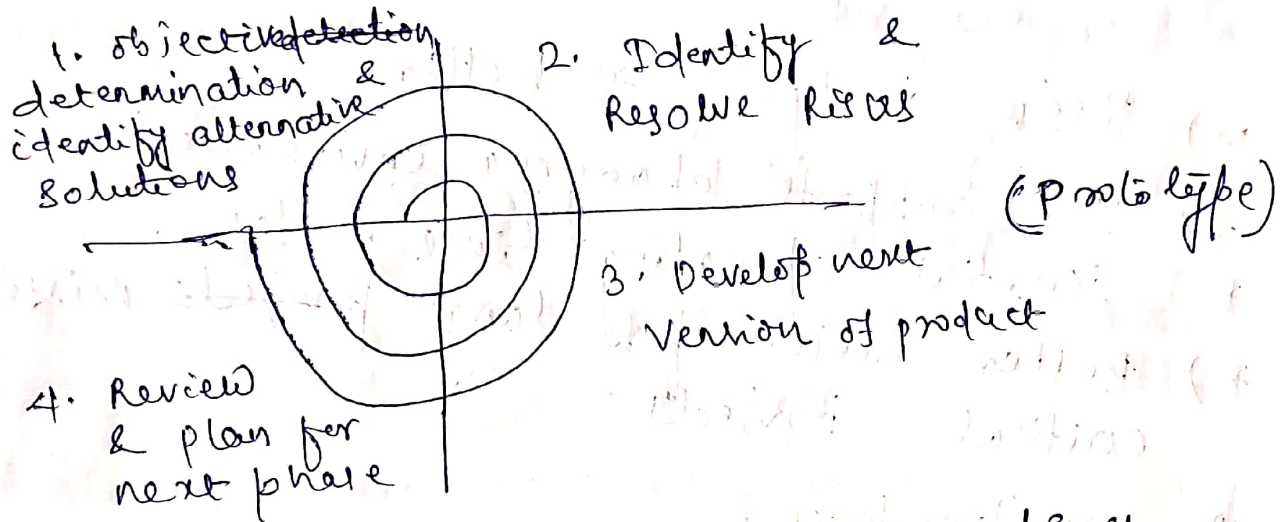 1. objective detection
determination &
identify alternative
solutions
2. Identify &
Resolve Risks
(Prototype)
3. Develop next
version of product
4. Review
& plan for
next phase